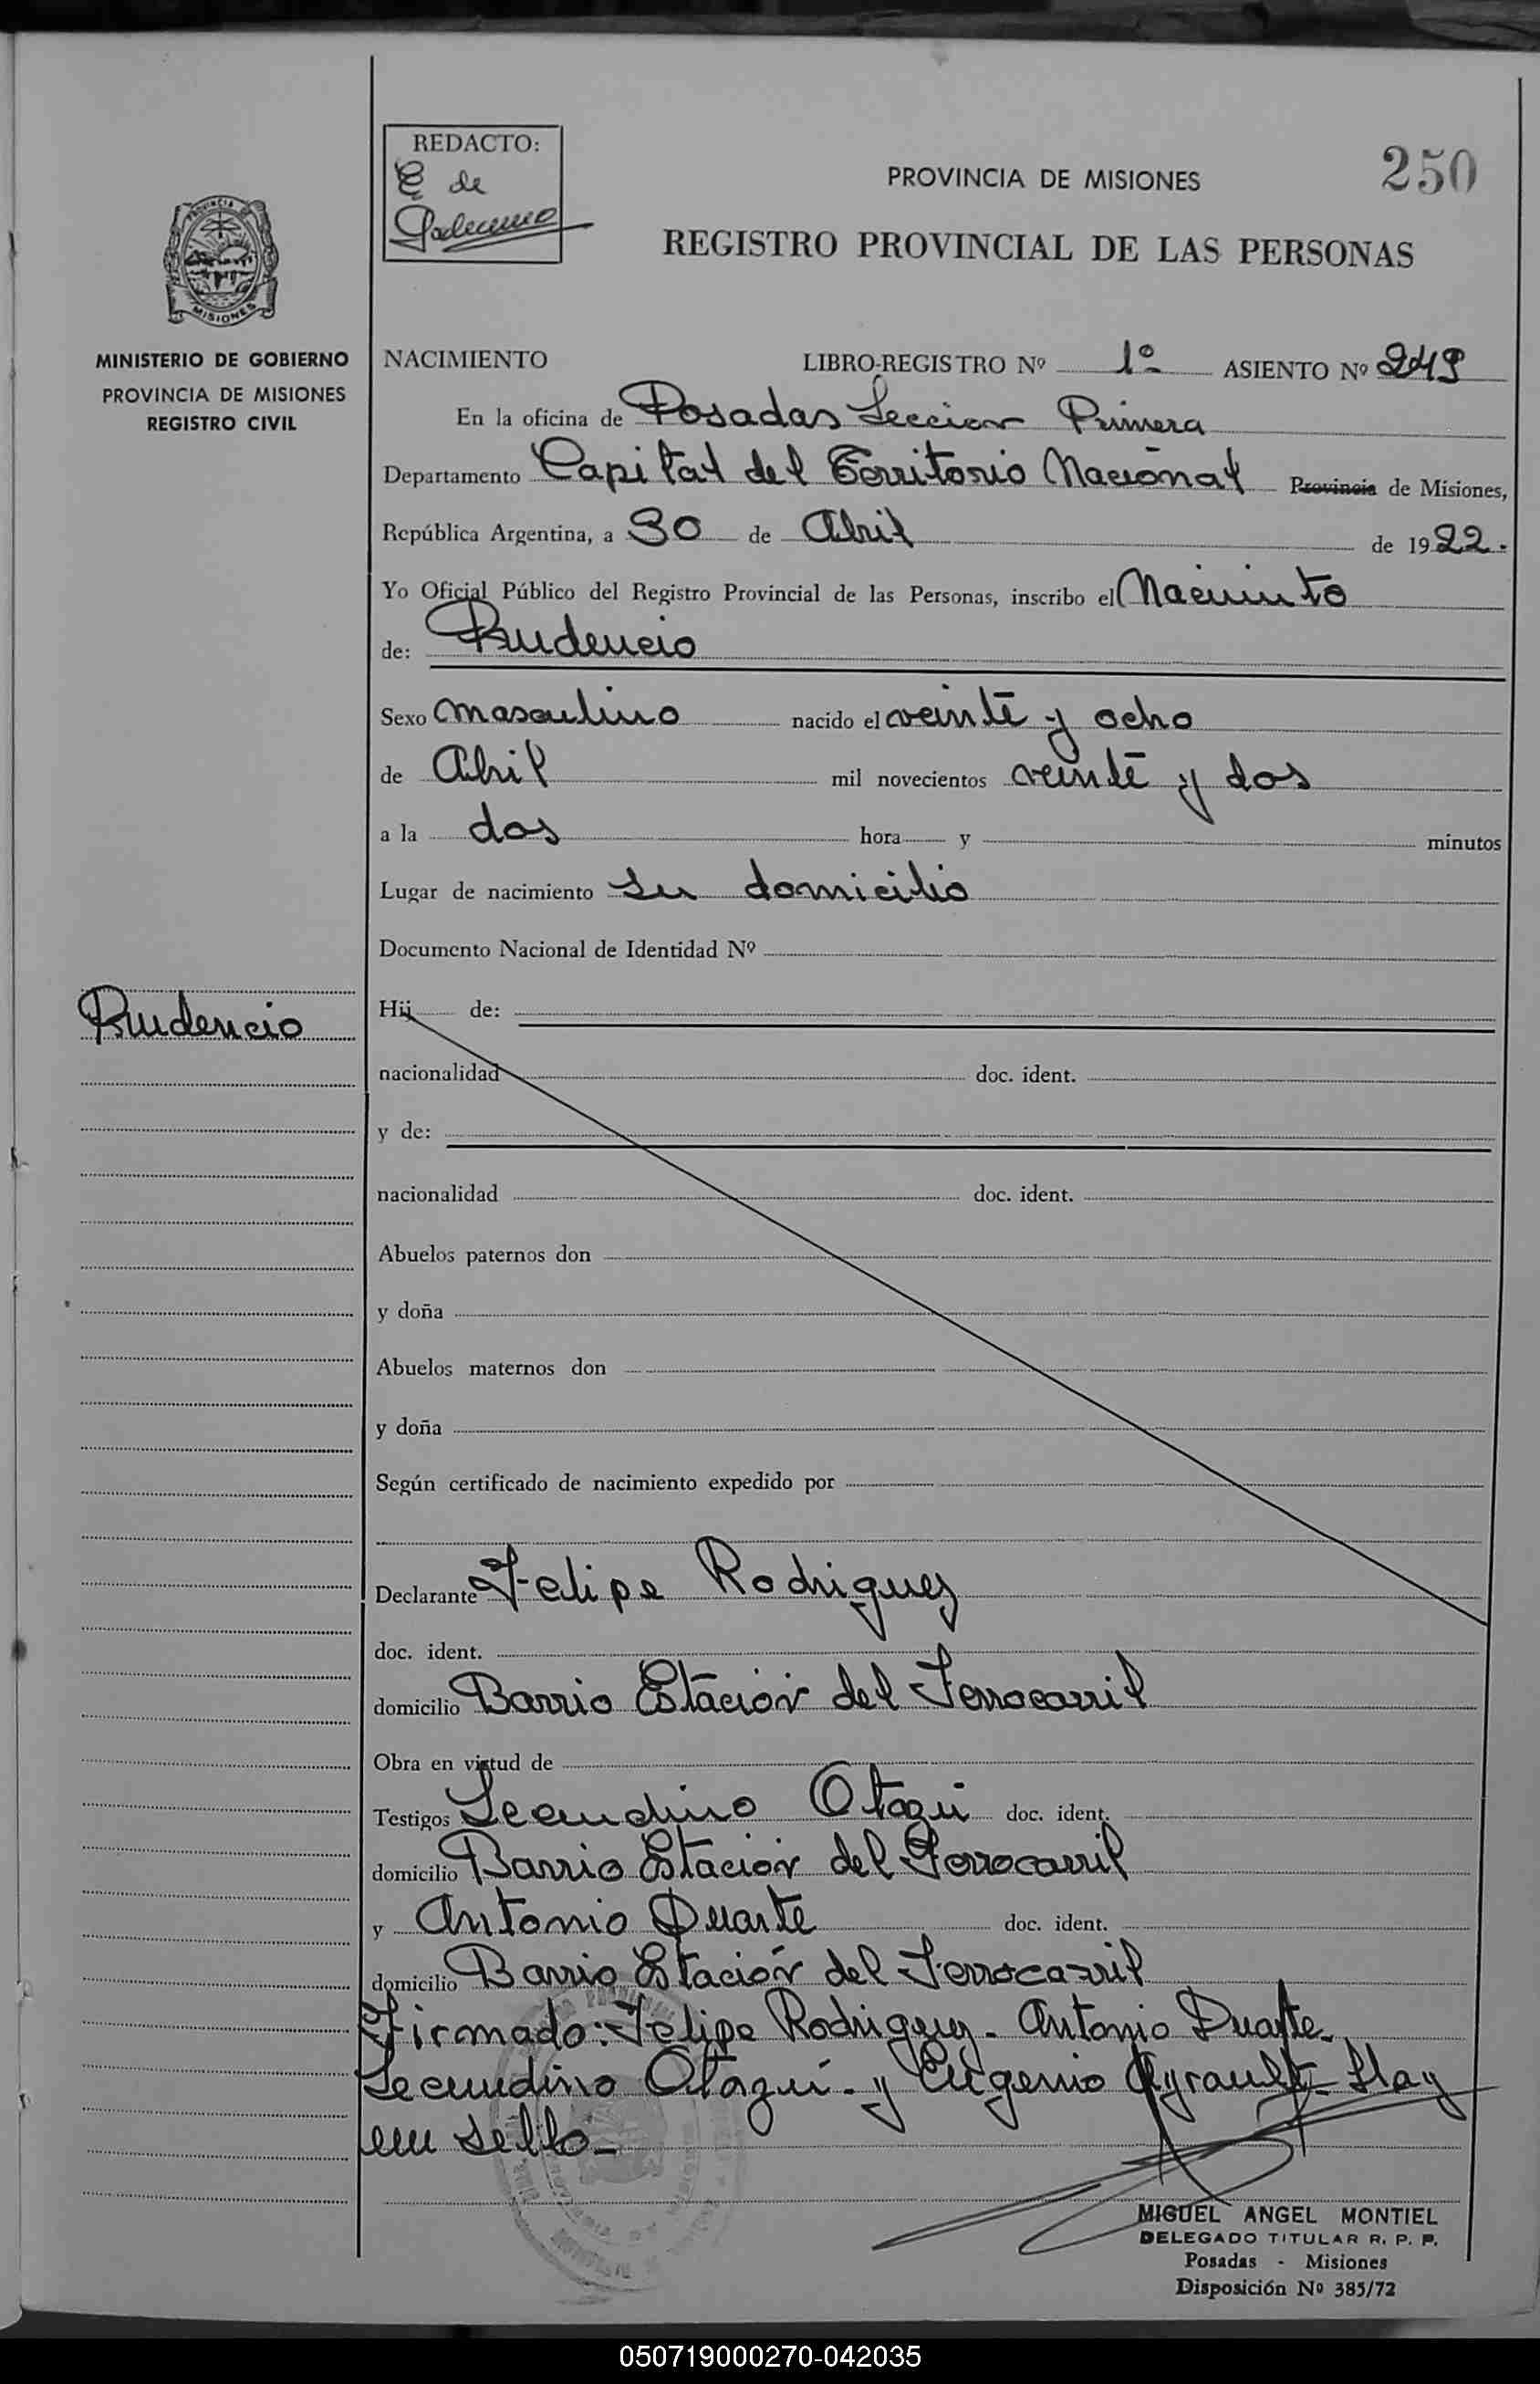 REDACTO:
E de
250
PROVINCIA DE MISIONES
REGISTRO PROVINCIAL DE LAS PERSONAS
MISIONES
MINISTERIO DE GOBIERNO
PROVINCIA DE MISIONES
REGISTRO CIVIL
NACIMIENTO LIBRO-REGISTRO Nº 1º ASIENTO Nº 249
En la oficina de Posadas Seccion Primera
Departamento Capital del Territorio Nacional Provincia de Misiones,
República Argentina, a 30 de Abril de 1922.
Yo Oficial Público del Registro Provincial de las Personas, inscribo el Nacimiento
de: Prudencio
Sexo masculino nacido el veinte y ocho
de Abril mil novecientos veinte y dos
a la dos hora y minutos
Lugar de nacimiento su domicilio
Documento Nacional de Identidad Nº
Prudencio
Hij de:
nacionalidad doc. ident.
y de:
nacionalidad doc. ident.
Abuelos paternos don
y doña
Abuelos maternos don
y doña
Según certificado de nacimiento expedido por
Declarante Felipe Rodriguez
doc. ident.
domicilio Barrio Estación del Ferrocarril
Obra en virtud de
Testigos Secundino Otazu doc. ident.
domicilio Barrio Estación del Ferrocarril
y Antonio Duarte doc. ident.
domicilio Barrio Estación del Ferrocarril
Firmado: Felipe Rodriguez - Antonio Duarte -
Secundino Otazu - y Eugenio Ayrault - Hay
un sello -
MIGUEL ANGEL MONTIEL
DELEGADO TITULAR R. P. P.
Posadas - Misiones
Disposición Nº 385/72
050719000270-042035